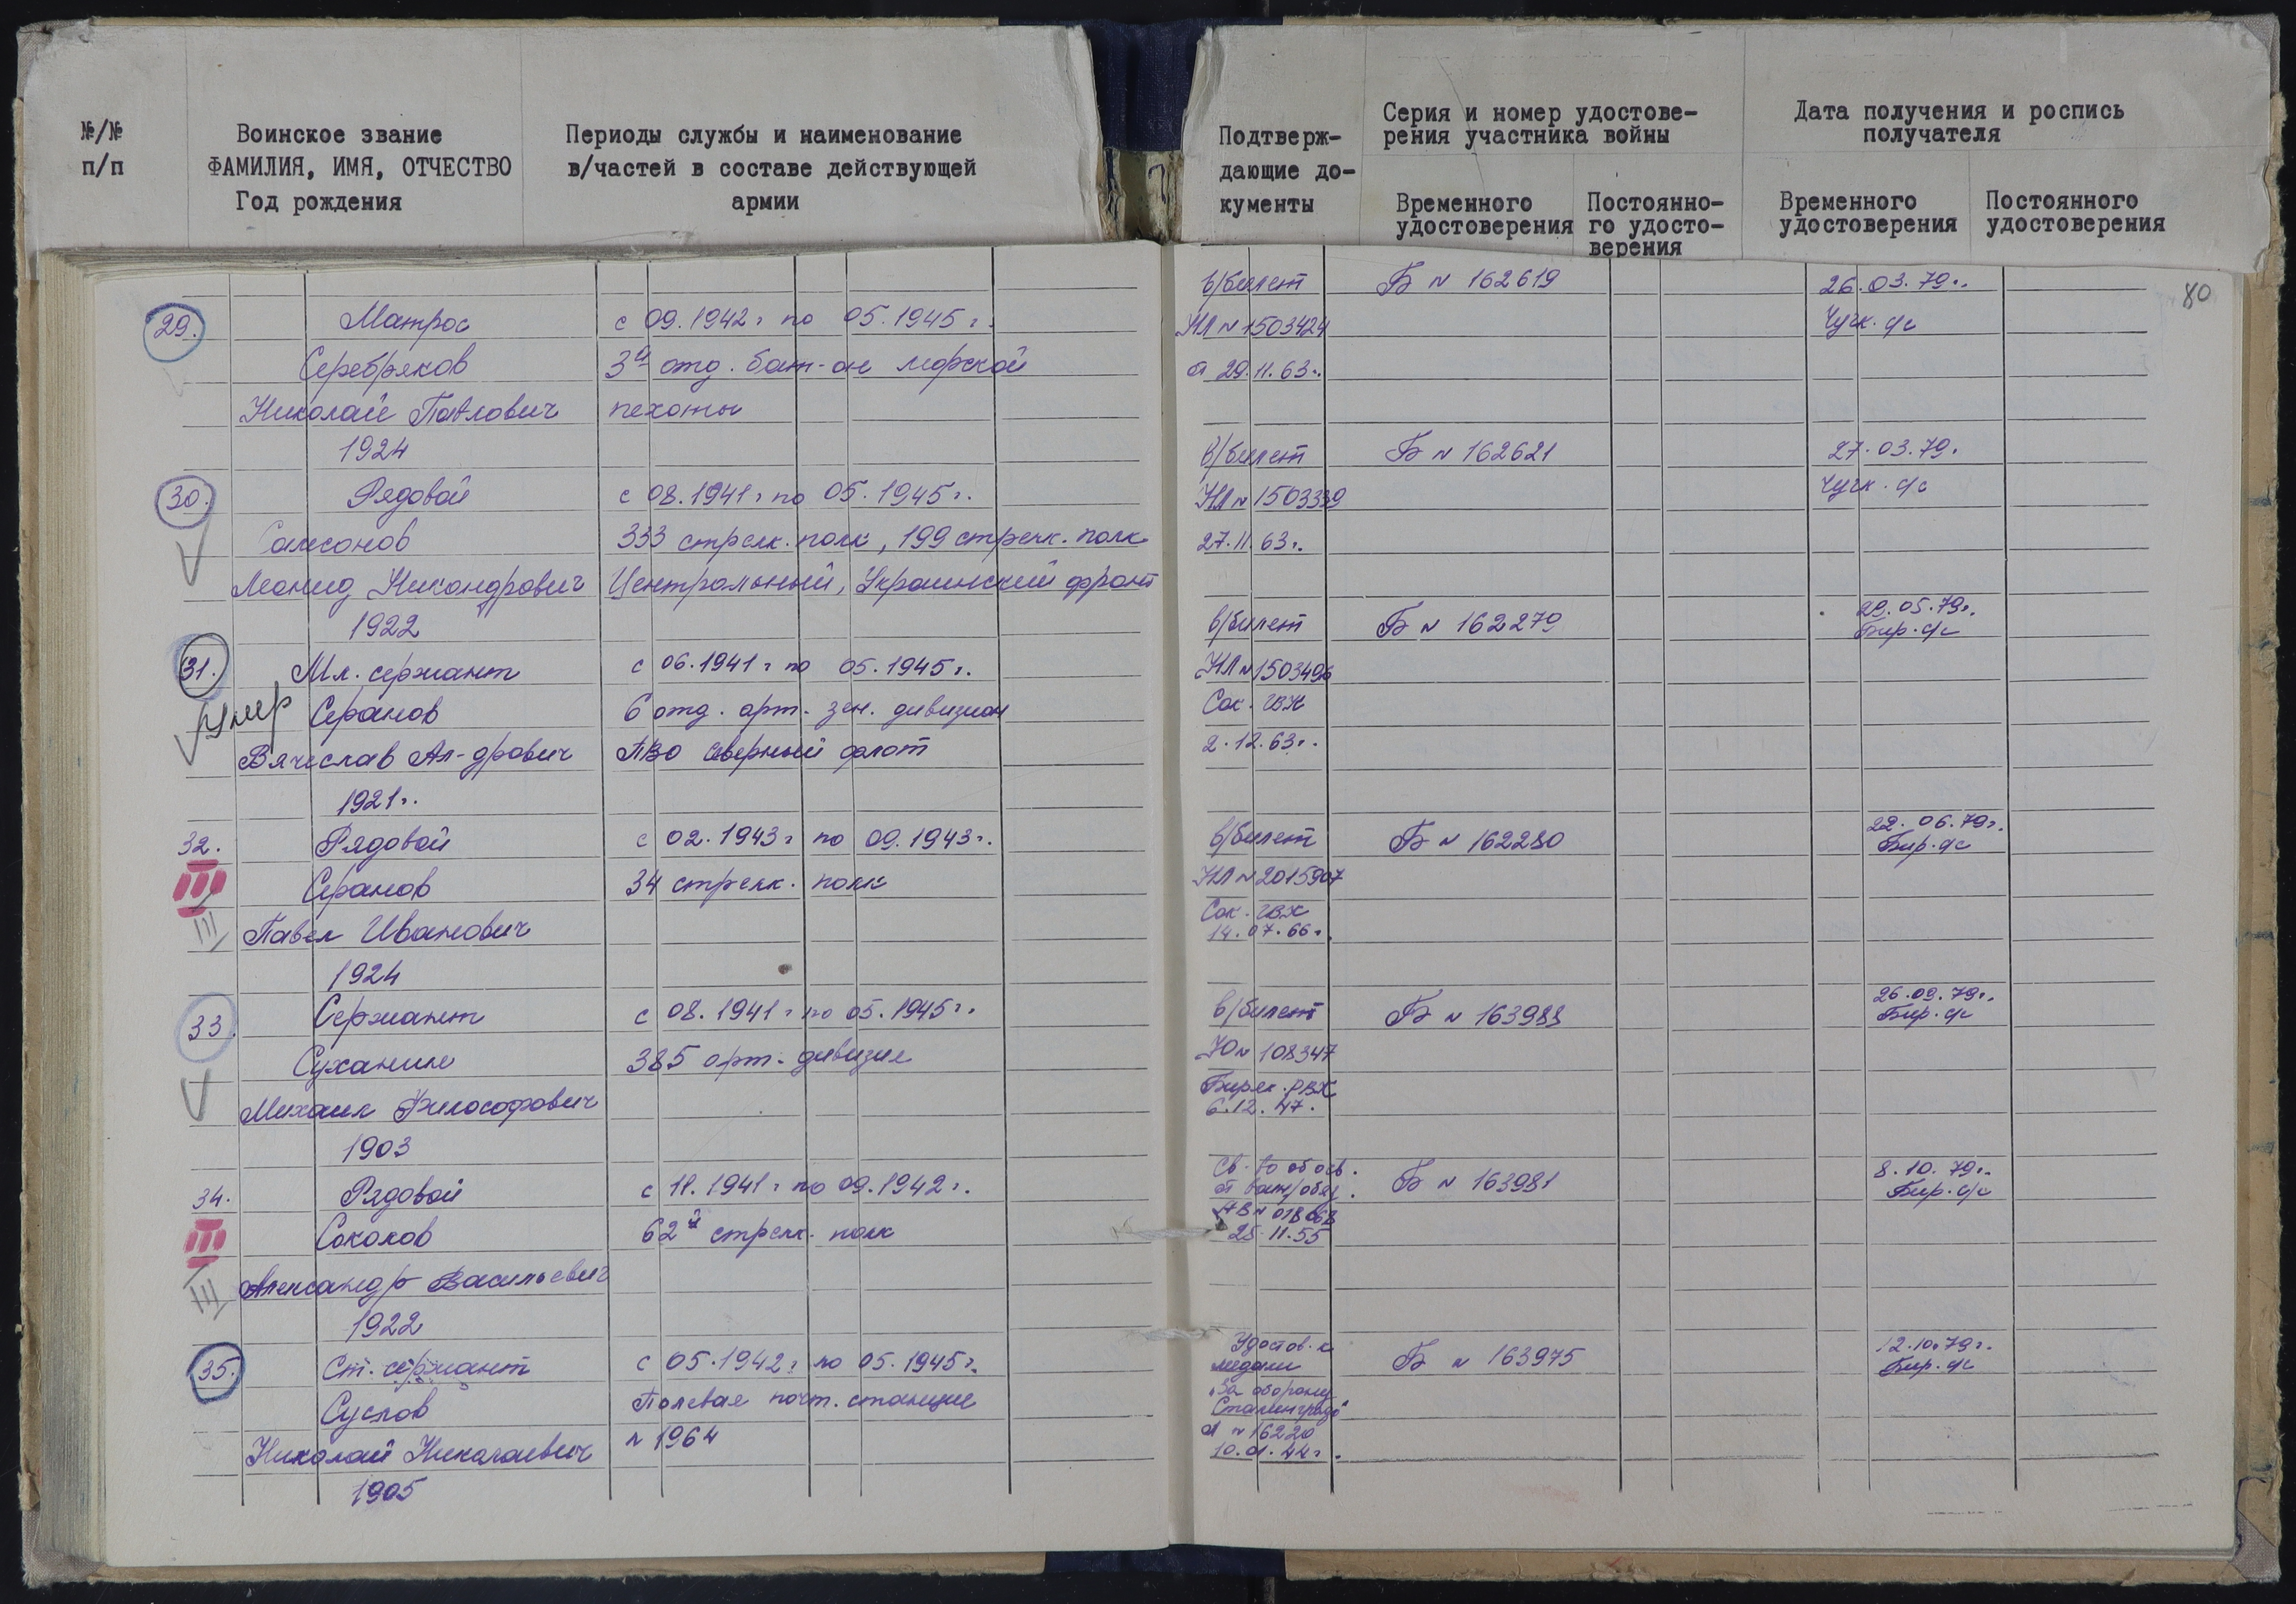 №/№
п/п
Воинское звание
ФАМИЛИЯ, ИМЯ, ОТЧЕСТВО
Год рождения
Периоды службы и наименование
в/частей в составе действующей
армии
Подтверж-
дающие до-
кументы
Серия и номер удостове-
рения участника войны
Временного
удостоверения
Постоянно-
го удосто-
верения
Дата получения и роспись
получателя
Временного
удостоверения
Постоянного
удостоверения
80
29.
Матрос
Серебряков
Николай Павлович
1924
с 09.1942г по 05.1945г.
3й отд. бат-он морской
пехоты
в/билет
НЛ № 1503424
от 29.11.63г.
Б № 162619
26.03.79г.
Чучк. с/с
30.
Рядовой
Самсонов
Леонид Никандрович
1922
с 08.1941г по 05.1945г.
333 стрелк. полк, 199 стрелк. полк
Центральный, Украинский фронт
в/билет
НЛ № 1503339
27.11.63г.
Б № 162621
27.03.79.
Чучк. с/с
31.
умер
Мл. сержант
Серанов
Вячеслав Ал-дрович
1921г.
с 06.1941г по 05.1945г.
6 отд. арт. зен. дивизион
ПВО Северный флот
в/билет
НЛ № 1503496
Сок. ГВК
2.12.63г.
Б № 162279
29.05.79г.
Бир. с/с
32.
III
III
Рядовой
Серанов
Павел Иванович
1924
с 02.1943г по 09.1943г.
34 стрелк. полк
в/билет
НЛ № 2015907
Сок. ГВК
14.07.66г.
Б № 162280
22.06.79г.
Бир. с/с
33.
Сержант
Суханин
Михаил Философович
1903
с 08.1941г по 05.1945г.
385 арт. дивизия
в/билет
Ю № 108347
Биряк. РВК
6.12.47.
Б № 163988
26.09.79г.
Бир. с/с
34.
III
III
Рядовой
Соколов
Александр Васильевич
1922
с 11.1941г по 09.1942г.
62й стрелк. полк
Св-во об осв.
от воин/обяз.
25.11.55
Б № 163981
8.10.79г.
Бир. с/с
35.
Ст. сержант
Суслов
Николай Николаевич
1905
с 05.1942г. по 05.1945г.
Полевая почт. станция
№ 1964
Удостов. к
медали
"За оборону
Сталинграда"
А № 16220
10.01.44г.
Б № 163975
12.10.79г.
Бир. с/с